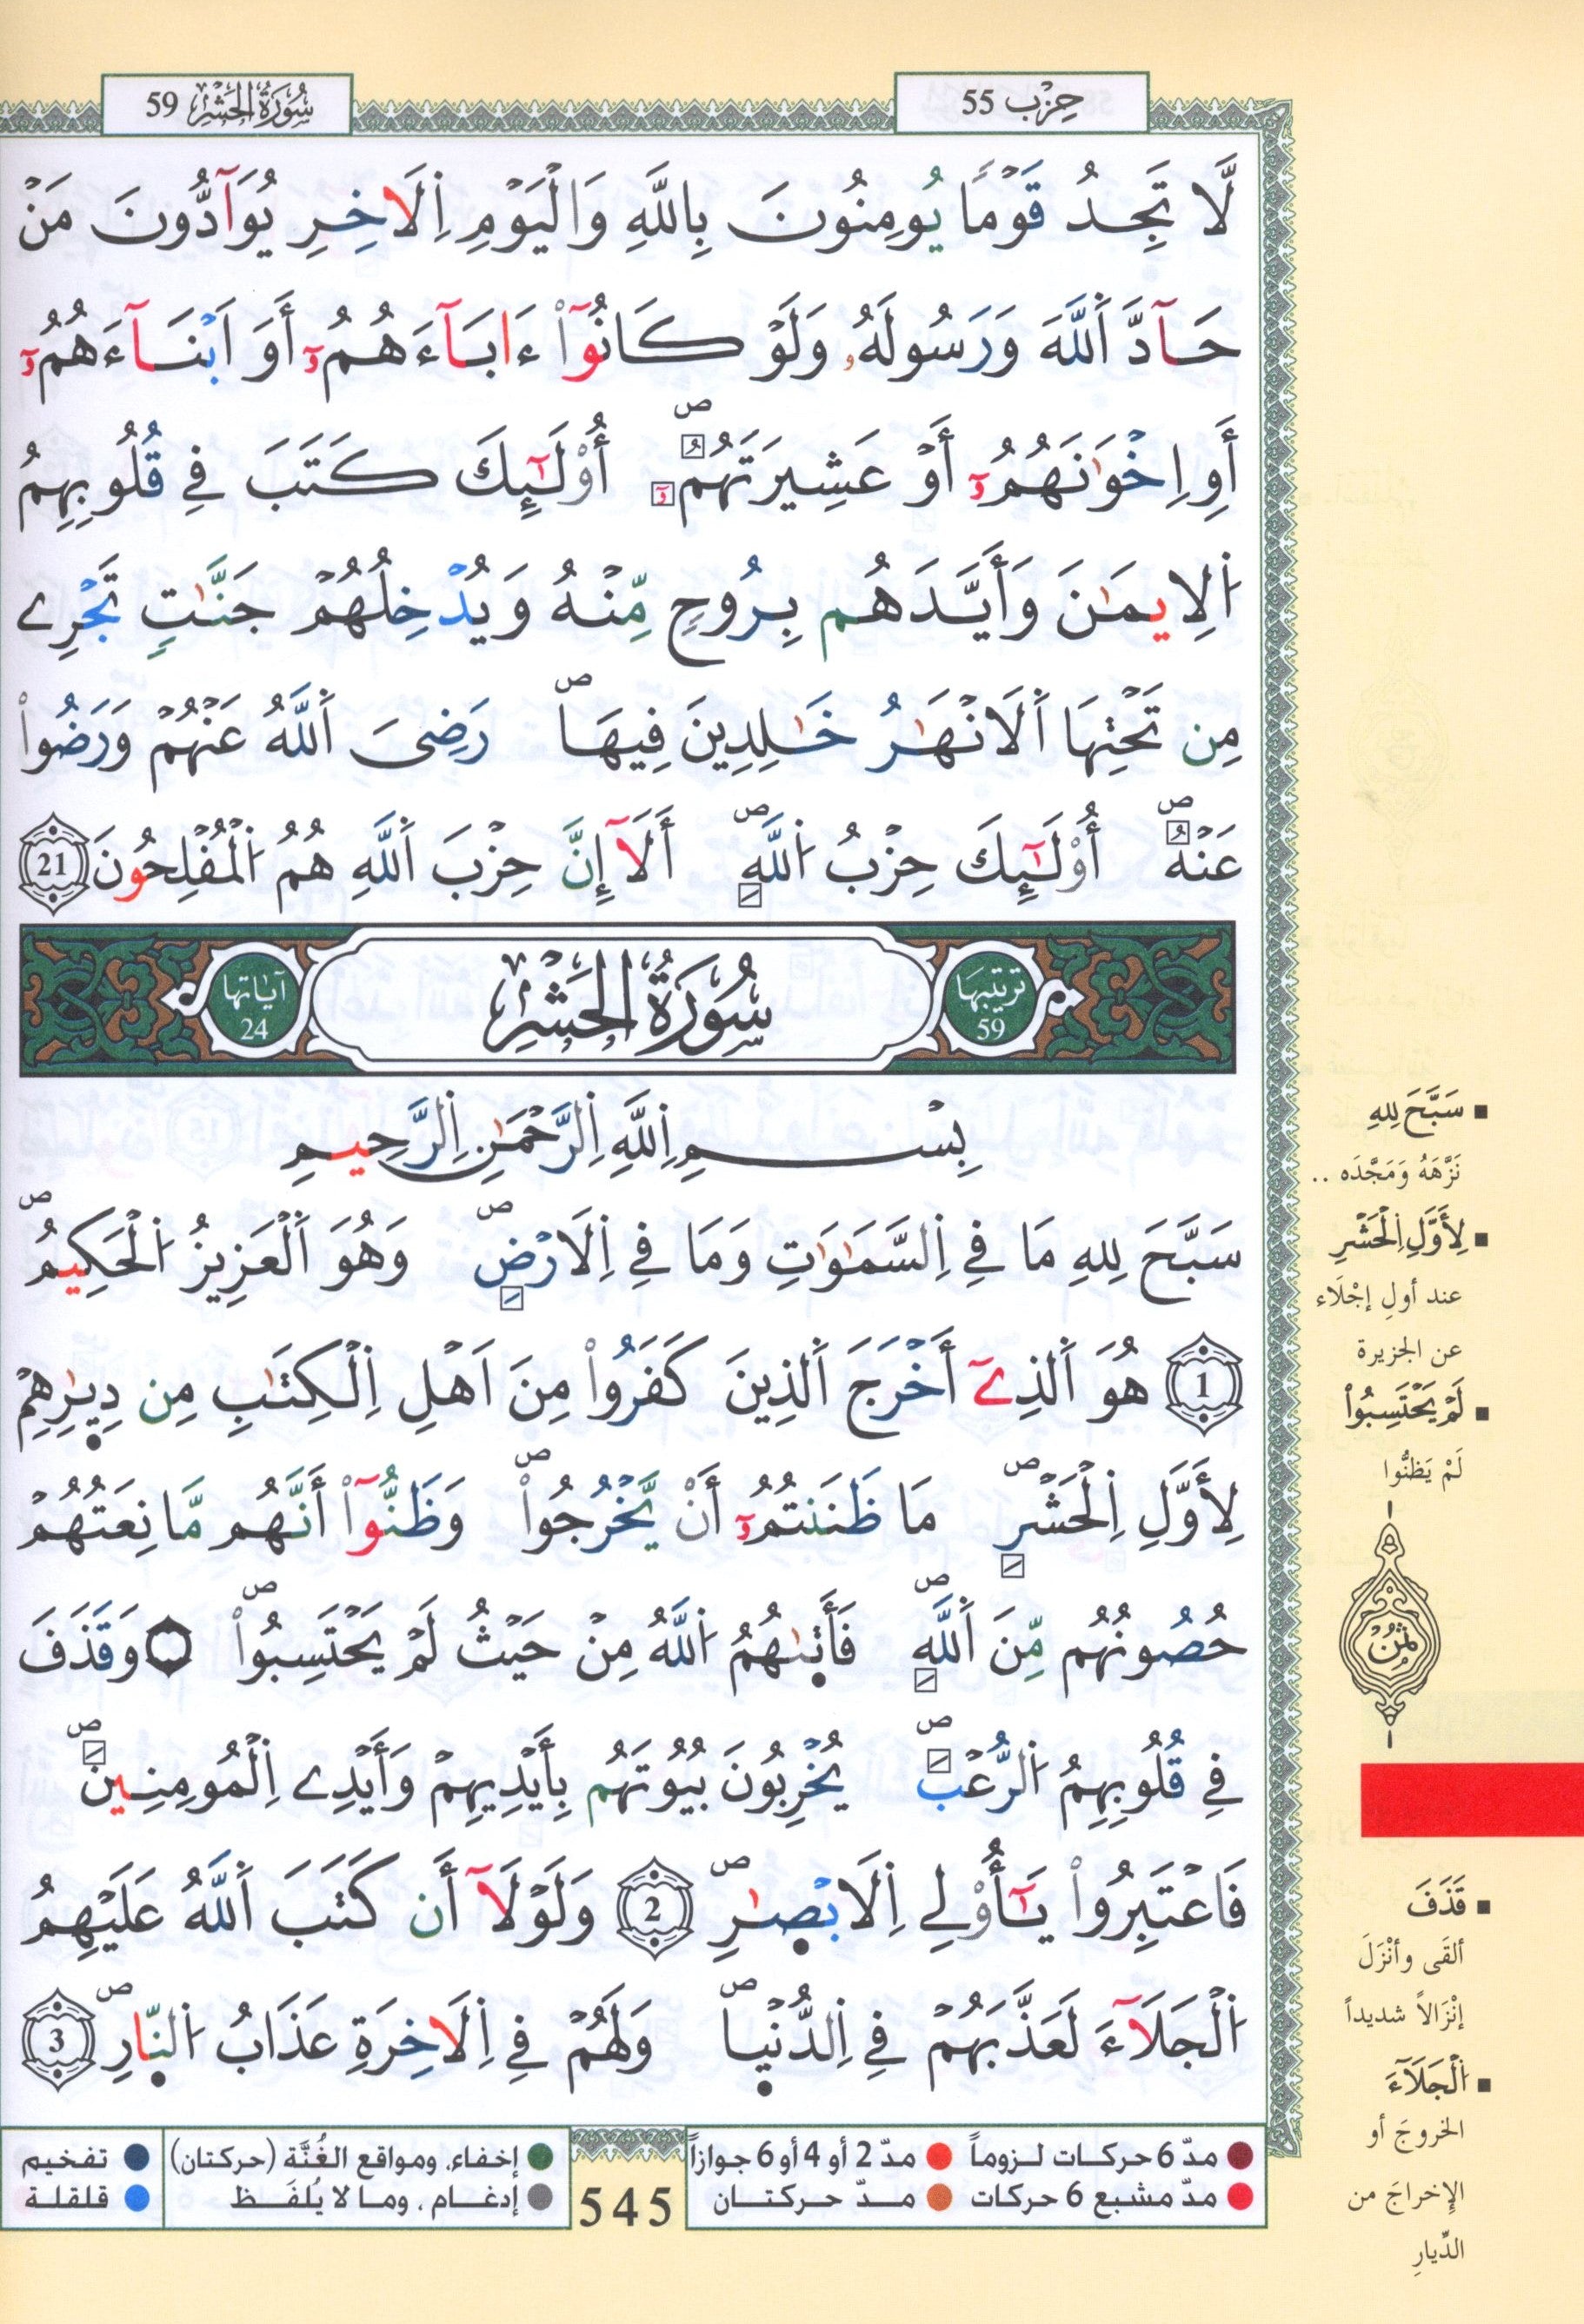 حِزْب 55
سُورَةُ الحَشْر 59
لَّا تَجِدُ قَوْمًا يُومِنُونَ بِاللَّهِ وَالْيَوْمِ اِلَاخِرِ يُوَآدُّونَ مَنْ
حَآدَّ اَللَّهَ وَرَسُولَهُۥ وَلَوْ كَانُوٓاْ ءَابَآءَهُمُۥٓ أَوَ اَبْنَآءَهُمُۥٓ
أَوِ اِخْوَٰنَهُمُۥٓ أَوْ عَشِيرَتَهُمُۥٓۖ أُوْلَٰٓئِكَ كَتَبَ فِے قُلُوبِهِمُ
اُلِايمَٰنَ وَأَيَّدَهُم بِرُوحٍ مِّنْهُ وَيُدْخِلُهُمْ جَنَّٰتٍ تَجْرِے
مِن تَحْتِهَا اَلَانْهَٰرُ خَٰلِدِينَ فِيهَاۖ رَضِيَ اَللَّهُ عَنْهُمْ وَرَضُواْ
عَنْهُۖ أُوْلَٰٓئِكَ حِزْبُ اُللَّهِۖ أَلَآ إِنَّ حِزْبَ اَللَّهِ هُمُ اُلْمُفْلِحُونَ 21
ترتيبها 59
سُورَةُ الحَشْرِ
آياتها 24
بِسْمِ اِللَّهِ اِلرَّحْمَٰنِ اِلرَّحِيمِ
سَبَّحَ لِلهِ مَا فِے اِلسَّمَٰوَٰتِ وَمَا فِے اِلَارْضِۖ وَهُوَ اَلْعَزِيزُ اُلْحَكِيمُۖ
1 هُوَ اَلذِےٓ أَخْرَجَ اَلذِينَ كَفَرُواْ مِنَ اَهْلِ اِلْكِتَٰبِ مِن دِيٰ۪رِهِمْ
لِأَوَّلِ اِلْحَشْرِۖ مَا ظَنَنتُمُۥٓ أَنْ يَّخْرُجُواْۖ وَظَنُّوٓاْ أَنَّهُم مَّانِعَتُهُمْ
حُصُونُهُم مِّنَ اَللَّهِۖ فَأَت۪ىٰهُمُ اُللَّهُ مِنْ حَيْثُ لَمْ يَحْتَسِبُواْۖ وَقَذَفَ
فِے قُلُوبِهِمُ اُلرُّعْبَۖ يُخْرِبُونَ بُيُوتَهُم بِأَيْدِيهِمْ وَأَيْدِے اِلْمُومِنِينَۖ
فَاعْتَبِرُواْ يَٰٓأُوْلِے اِلَابْصٰ۪رِۖ 2 وَلَوْلَآ أَن كَتَبَ اَللَّهُ عَلَيْهِمُ
اُلْجَلَآءَ لَعَذَّبَهُمْ فِے اِلدُّنْي۪اۖ وَلَهُمْ فِے اِلَاخِرَةِ عَذَابُ اُلنّ۪ارِۖ 3
سَبَّحَ لِلهِ
نَزَّهَهُ وَمَجَّدَه ..
لِأَوَّلِ اِلْحَشْرِ
عند أولِ إجْلَاء
عن الجزيرة
لَمْ يَحْتَسِبُواْ
لَمْ يَظنُّوا
ثُمُن
قَذَفَ
ألقَى وأنْزَلَ
إنْزَالاً شديداً
اُلْجَلَآءَ
الخروجَ أو
الإخراجَ من
الدِّيارِ
مدّ 6 حركات لـزوماً مدّ 2 أو 4 أو 6 جوازاً
مدّ مشبع 6 حركات مـدّ حـركتـان
545
إخفاء، ومواقع الغُنَّة (حركتان) تفخيم
إدغـام ، ومـا لا يُلفَـظ قلقلـة